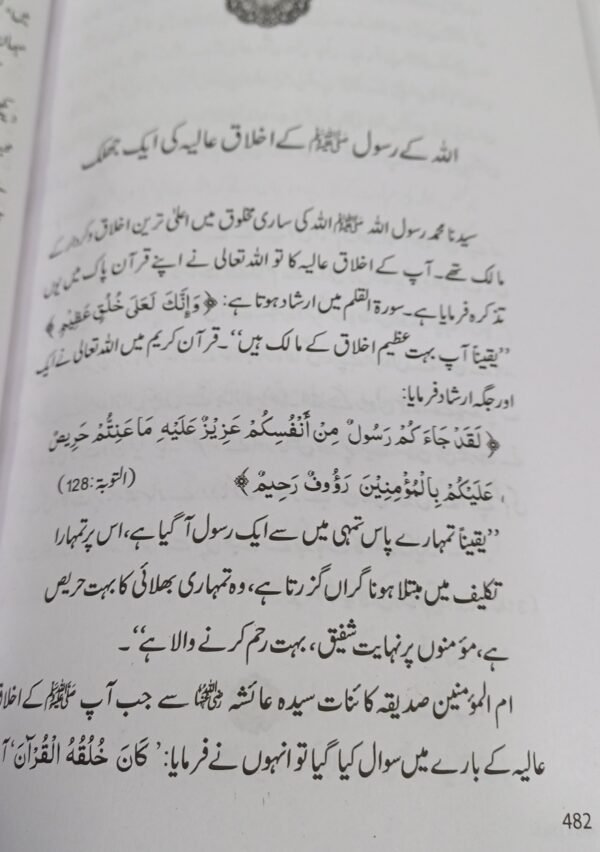 اللہ کے رسول ﷺ کے اخلاق عالیہ کی ایک جھلک
سیدنا محمد رسول اللہ ﷺ اللہ کی ساری مخلوق میں اعلیٰ ترین اخلاق وکردار کے
مالک تھے۔ آپ کے اخلاق عالیہ کا تو اللہ تعالی نے اپنے قرآن پاک میں یوں
تذکرہ فرمایا ہے۔ سورۃ القلم میں ارشاد ہوتا ہے: ﴿وَإِنَّكَ لَعَلَىٰ خُلُقٍ عَظِيْمٍ﴾
’’یقیناً آپ بہت عظیم اخلاق کے مالک ہیں‘‘۔ قرآن کریم میں اللہ تعالیٰ نے ایک
اور جگہ ارشاد فرمایا:
﴿لَقَدْ جَاءَكُمْ رَسُولٌ مِنْ أَنْفُسِكُمْ عَزِيْزٌ عَلَيْهِ مَا عَنِتُّمْ حَرِيصٌ
عَلَيْكُمْ بِالْمُؤْمِنِيْنَ رَؤُوفٌ رَحِيمٌ﴾ (التوبۃ:128)
’’یقیناً تمہارے پاس تمہی میں سے ایک رسول آ گیا ہے، اس پر تمہارا
تکلیف میں مبتلا ہونا گراں گزرتا ہے، وہ تمہاری بھلائی کا بہت حریص
ہے، مؤمنوں پر نہایت شفیق، بہت رحم کرنے والا ہے‘‘۔
ام المؤمنین صدیقہ کائنات سیدہ عائشہ رضی اللہ عنہا سے جب آپ ﷺ کے اخلاق
عالیہ کے بارے میں سوال کیا گیا تو انہوں نے فرمایا: ’كَانَ خُلُقُهُ الْقُرْآنَ‘
482